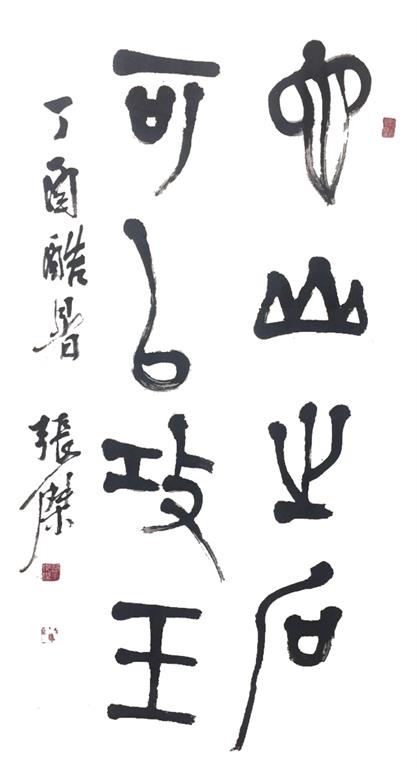 它山之石
可以攻玉
丁酉酷暑 張傑